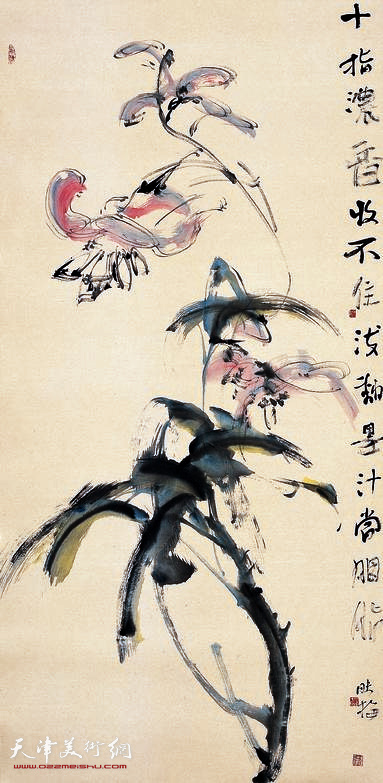 十指濃香收不住泼翻墨汁當胭脂
天津美術網
www.022meishu.com